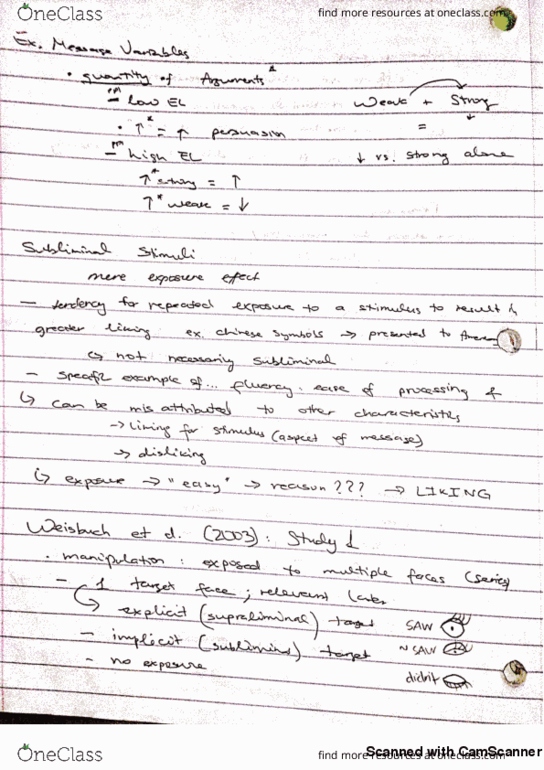 OneClass
find more resources at oneclass.com
Ex. Message Variables
• quantity of Arguments
- low EL
Weak + Strong
• ↑ = ↑ persuasion
=
↓
- high EL
↓ vs. strong alone
↑ strong = ↑
↑ weak = ↓
Subliminal Stimuli
mere exposure effect
- tendency for repeated exposure to a stimulus to result in
greater liking ex. chinese symbols → presented to
↳ not necessarily subliminal
- specific example of... fluency: ease of processing
↳ can be misattributed to other characteristics
→ liking for stimulus (aspect of message)
→ disliking
↳ exposure → "easy" → reason??? → LIKING
Weisbuch et al. (2003): Study 1
• manipulation: exposed to multiple faces (series)
- 1 target face; relevant later
↳ explicit (supraliminal) target SAW
- implicit (subliminal) target ~SAW
- no exposure didn't
OneClass
find more resources at oneclass.com
Scanned with CamScanner